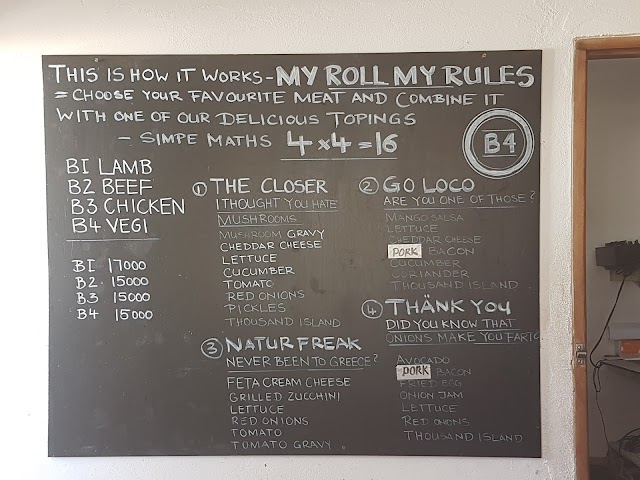 THIS IS HOW IT WORKS - MY ROLL MY RULES
= CHOOSE YOUR FAVOURITE MEAT AND COMBINE IT
WITH ONE OF OUR DELICIOUS TOPINGS
- SIMPE MATHS 4x4=16
B4
B1 LAMB
B2 BEEF
B3 CHICKEN
B4 VEGI
B1 17000
B2 15000
B3 15000
B4 15000
1 THE CLOSER
I THOUGHT YOU HATE
MUSHROOMS
MUSHROOM GRAVY
CHEDDAR CHEESE
LETTUCE
CUCUMBER
TOMATO
RED ONIONS
PICKLES
THOUSAND ISLAND
2 GO LOCO
ARE YOU ONE OF THOSE?
MANGO SALSA
LETTUCE
CHEDDAR CHEESE
PORK BACON
CUCUMBER
CORIANDER
THOUSAND ISLAND
3 NATUR FREAK
NEVER BEEN TO GREECE?
FETA CREAM CHEESE
GRILLED ZUCCHINI
LETTUCE
RED ONIONS
TOMATO
TOMATO GRAVY
4 THÄNK YOU
DID YOU KNOW THAT
ONIONS MAKE YOU
AVOCADO
PORK BACON
FRIED EGG
ONION JAM
LETTUCE
RED ONIONS
THOUSAND ISLAND